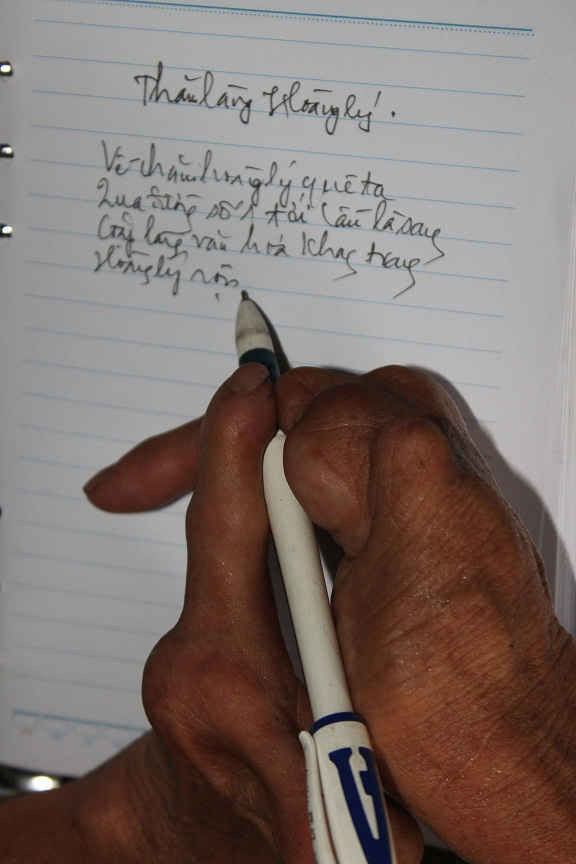 Thăm làng Hoàng lý.
Về thăm hoàng lý quê ta
Qua đường số 1 tới Cầu là sang
Cổng làng văn hoá khang trang
Hoàng lý rộn
A